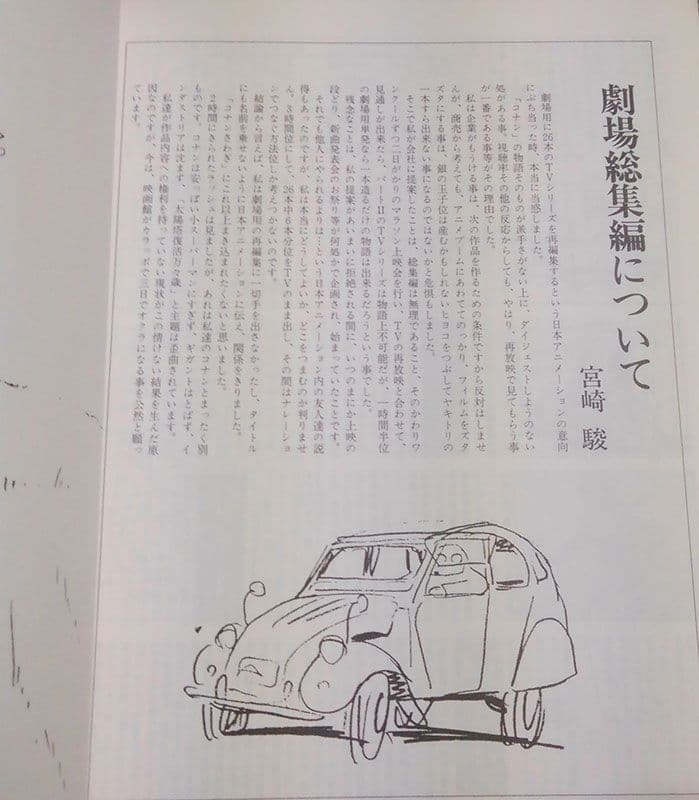 劇場総集編について
宮崎 駿
劇場用に26本のTVシリーズを再編集するという日本アニメーションの意向
にぶち当った時、本当に当惑しました。
「コナン」の物語そのものが派手さがない上に、ダイジェストしようのない
処がある事、視聴率その他の反応からしても、やはり、再放映で見てもらう事
が一番である事等がその理由でした。
私は企業がもうける事は、次の作品を作るための条件ですから反対はしませ
んが、商売から考えても、アニメブームにあわててのっかり、フィルムをズタ
ズタにする事は、銀の玉子位は産むかもしれないヒヨコをつぶしてヤキトリの
一本すら出来ない事になるのではないかと危惧もしました。
そこで私が会社に提案したことは、総集編は無理であること、そのかわりワ
ンクールずつ二日がかりのマラソン上映会を行い、TVの再放映と合わせて、
見通しが出来たら、パートIIのTVシリーズは物語上不可能だが、一時間半位
の劇場用単発なら一本造るだけの物語は出来るだろうという事でした。
残念なことは、私の提案があいまいに拒絶される間に、いつのまにか上映の
段どり、新曲発表会のお祭り等が何処かで企画され、始まっていたことです。
それでも他人にやられるよりは…という日本アニメーション内の友人達の説
得もあったのですが、私は本当にどうしてよいか、どこをつまむのか判りませ
ん。3時間位にして、26本中6本分位をTVのまま出し、その間はナレーショ
ンでつなぐ方法位しか考えつかないのです。
結論から言えば、私は劇場用の再編集に一切手を出さなかったし、タイトル
にも名前を乗せないように日本アニメーションに伝え、関係をきりました。
「コナンさわぎ」にこれ以上まき込まれたくないと思いました。
2時間にきられたラッシュは見ましたが、あれは私達のコナンとまったく別
ものです。コナンは安っぽい小スーパーマンにすぎ、ギガントはとばず、イ
ンダストリアは沈まず、「太陽塔復活万々歳」と主題は歪曲されています。
私達が作品内容への権利を持っていない現状がこの情けない結果を生んだ原
因なのですが、今は、映画館がカラッポで三日でオクラになる事を公然と願っ
ています。